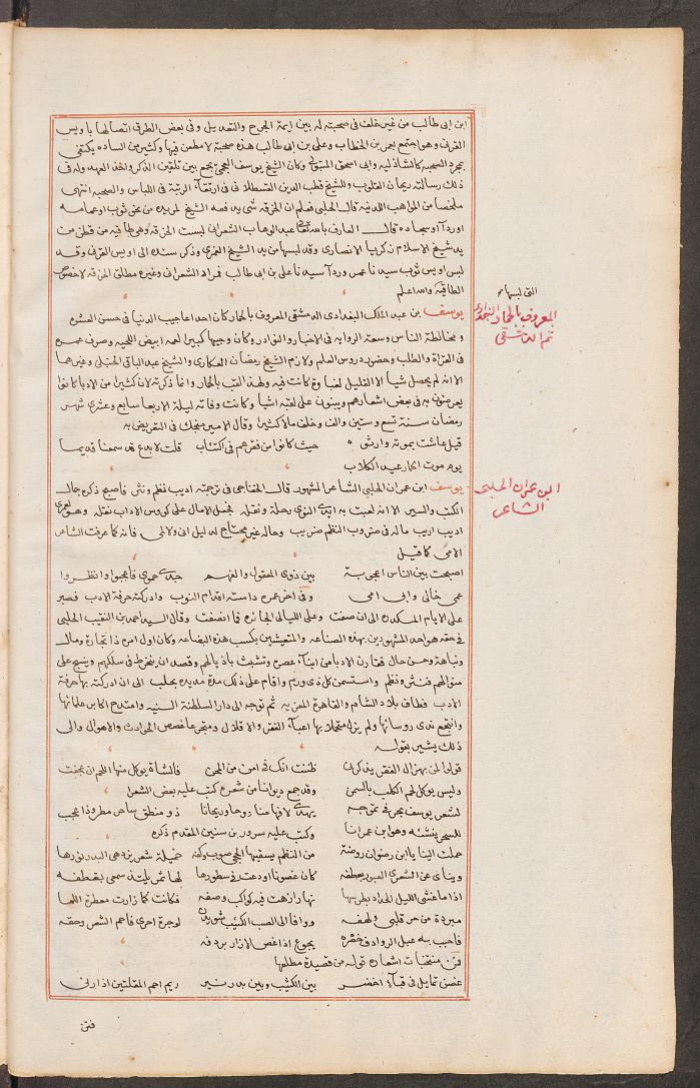 ابن ابى طالب من غير خلف فى صحبته له بين ايمة الجرح والتعديل وفى بعض الطرق اتصالها باويس
القرنى وهو اجتمع بعمر بن الخطاب وعلى بن ابى طالب هذه صحبة لا مطعن فيها وكثير من الساده يكتفى
بمجرد الصحبه كالشاذليه وابى اسحق وكان الشيخ يوسف العجمى يجمع بين تلقين الذكر واخذ العهد وله فى
ذلك رسالته ريحان القلوب وللشيخ قطب الدين القسطلانى فى ارتقاء الرتبة فى اللباس والصحبه انتهى
ملخصا من المواهب اللدنيه قال الحلبى فعلم ان الخرقه شى يدفعه الشيخ لمريده من نحو ثوب او عمامه
او رداء او سجاده قال العارف بالله تعالى عبد الوهاب الشعرانى لبست الخرقه وهى طاقيه من قطن من
يد شيخ الاسلام زكريا الانصارى وقد لبسها من يد الشيخ الغمرى وذكر سنده الى اويس القرنى وقد
لبس اويس ثوب سيدنا عمر ورداء سيدنا على بن ابى طالب فمراد الشعرانى وغيره مطلق الخرقه لا خصوص
الطاقيه والله اعلم
التى لبسها
يوسف بن عبد الملك البغدادى الدمشقى المعروف بالحمار كان احد اعاجيب الدنيا فى حسن العشره
المعروف بالحمار البغدادى
ثم الدمشقى
ومخالطة الناس وسعة الروايه فى الاخبار والنوادر وكان وجيها كبير العمه ابيض اللحيه وصرف عمره
فى القراة والطلب وحضور دروس العلم ولازم الشيخ رمضان العكارى والشيخ عبد الباقى الحنبلى وغيرهما
الا انه لم يحصل شيا الا القليل لغباوة كانت فيه ولهذا لقب بالحمار وانما ذكرته لان كثيرا من الادبا كانوا
يعرضون به فى بعض اشعارهم ويبنون على لقبه اشيا وكانت وفاته ليلة الاربعا سابع وعشرى شهر
رمضان سنة تسع وستين والف وخلف مالا كثيرا وقال الامير منجك فى التعريض به
قيل عاشت بموته وارثوه حيث كانوا من فقرهم فى اكتئاب قلت لا بدع قد سمعنا قديما
يوم موت الحمار عيد الكلاب
يوسف ابن عمران الحلبى الشاعر المشهور قال الخفاجى فى ترجمته اديب نظم ونثر فاصبح ذكره جمال
ابن عمران الحلبى
الشاعر
الكتب والسير الا انه لعبت به ايدى النوى رحلة ونقله فجعل الامال على كروس الاداب نقله وهو لعمرى
اديب اريب ماله فى ضروب النظم ضريب وحاله غير محتاج لدليل انى ولا لمى فانه كما عرفت الشاعر
الامى كما قيل
اصبحت بين الناس اعجوبة بين ذوى المعقول والفهم جدى حموى فاعجبوا وانظروا
عمى خالى وابى امى وفى اخر عمره داسته اقدام النوب وادركته حرفة الادب فصبر
على الايام المنكده الى ان صفت وعلى الليالى الجائره فما انصفت وقال السيد احمد بن النقيب الحلبى
فى حقه هو احد المشهورين بهذه الصناعه والمتعيشين بكسب هذه البضاعه وكان اول امره ذا تجارة ومال
ونباهة وحسن حال فقارن الادبا من ابناء عصره وتشبث باذيالهم وقصد ان ينخرط فى سلكهم وينسج على
منوالهم فنثر ونظم واستسمن كل ذى ورم واقام على ذلك مدة مديده بحلب الى ان ادركته بها حرفة
الادب فطاف بلاد الشام والقاهرة المعزيه ثم توجه الى دار السلطنة السنيه وامتدح اكابر علمائها
وانتجع ندى روسائها ولم يزل متحملا بها اعباء الفقر والاقلال ومتجرعا غصص الحوادث والاهوال والى
ذلك يشير بقوله
قولوا لمن بهزال الفقر يذكرنى ظننت انك فى امن من المحن فالشاة يوكل منها اللحم ان عجفت
وليس يوكل لحم الكلب بالسمن وقد جمع ديوانا من شعره كتب عليه بعض الشعرا
لشعر يوسف بحر فى تموجه يهدى لافهامنا روحا وريحانا ذو منطق ساحر مطر وذا عجب
للسحر ينشئه وهو ابن عمرانا وكتب عليه سرور بن سنين المقدم ذكره
حملت الينا يا ابن رضوان روضة من النظم يسقيها الحجى صوب وكفه خميلة شعر يزدهى البدر نورها
ويناى عن الشعرى العبور بعطفه كان غصونا اودعت فى سطورها لها ثمر يلتذ سمعى بقطفه
اذا ما غشى الليل الحداد بطرسها نهارا زهت فيه كواكب وصفه فكانت كما زارت معطرة اللما
مبردة من حر قلبى ولهفه ووافا الى الصب الكئيب لوجرة احرى فاحم الشعر وحفه
فاحبب به عبل الروادف خصره يجوع اذا غص الازار بردفه
فمن منتخبات اشعاره قوله من قصيدة مطلعها
غصن تمايل فى قباء اخضر بين الكثيب وبين بدر نير ريم احم المقلتين اذا رنى
فتن